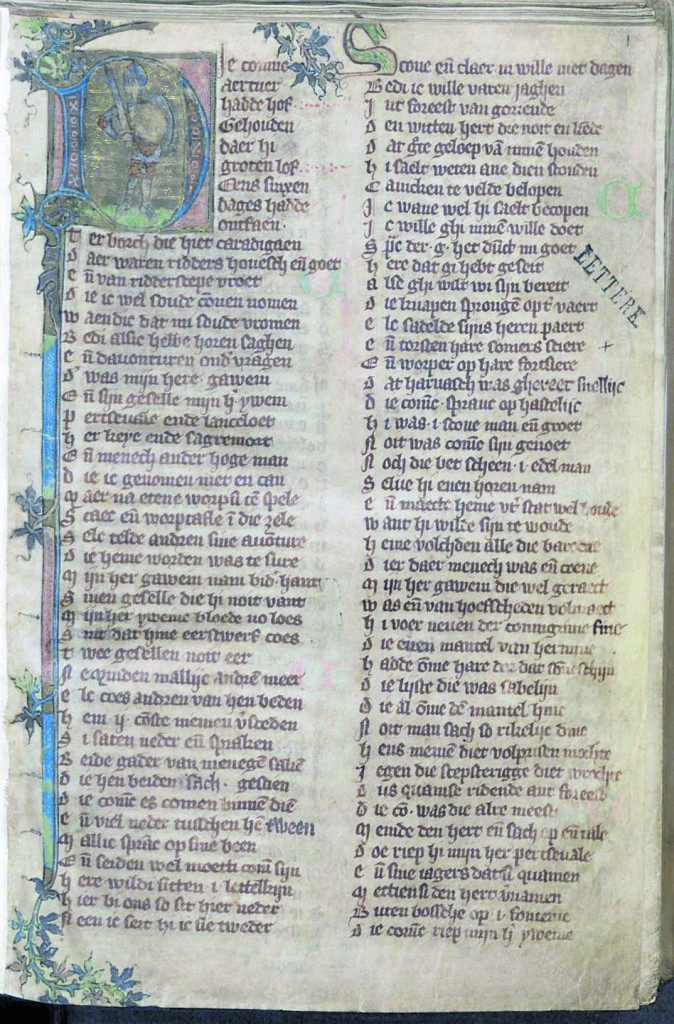 Ie coninc
aertuer
hadde hof
Gehouden
daer hi
groten lof
Eens sinxen
dages hadde
ontfaen.
Ter borch die hiet caradigaen
Daer waren ridders houesch en̄ goet
E n̄ van ridderscepe vroet
Die ic wel soude connen nomen
Waendic dat mi soude vromen
Bedi alsic hebbe horen saghen
E n̄ dauonturen ond vragen
D' was mijn here gawein
E n̄ sijn geselle mijn h' ywein
Pertseuale ende lanceloet
Her keye ende sagremort
E n̄ menech ander hoge man
Die ic genomen niet en can
Maer na etene worpsi tē spele
Scaec en̄ worptafle ī die zele
Selc telde andren sine auōture
Die heme worden was te sure
Mijn her gawein nam bid hant
Sinen geselle die hi noit vant
Mijn her yweine bloede no loes
Sint dat hine eerstwerf coes
Twee gesellen noit eer
Mīnden mallijc andrē meer
Ele coes andren van hen beden
Hem ij const niemen v'sceden
Si saten neder en̄ spraken
Beide gader van menegē sakē
Die hen beiden sach gescien
Die conīc es comen binnē diē
E n̄ viel neder tusschen hē tween
Mallic sprāc op sine been
E n̄ seiden wel moetti conīc sijn
Here wildi sitten i lettelkijn
Hier bi ons so sit hier neder
Neen ic seit hi ic sie tweder
Scone en̄ claer in wille niet dagen
Bedi ic wille varen jaghen
Int foreest van gorriende
Den witten hert die noit en liede
Dat gh'te geloep vā minen honden
Hi saelt weten ane dien stonden
Caumken te velde belopen
Ic wane wel hi saelt becopen
Ic wille ghi minen wille doet
Sp̄c der .g. het dūct mi goet
Here dat gi hebt geseit
Alse ghi wilt wi sijn bereit
Die knapen sprongē opt vaert
Ele sadelde sijns heren paert
E n̄ torsten hare somers sciere
E n̄ worper op hare fortsiere
Dat harnasch was ghereet snellijc
Die conīc spranc op hastelijc
Hi was i scone man en̄ groet
Noit was conīc sijn genoet
Noch die bet scheen i edel man
Selue hi enen horen nam
E n̄ maecte heme vt' stat wel houde
Want hi wilde sijn te woude
Heme volchden alle die baroene
Dier daer menech was en̄ coene
Mijn her gawein die wel geraect
Was en̄ van hoefscheden volmaect
Hi voer neuen der coninginne fine
Die enen mantel van hermine
Hadde ōme hare
Die lijste die was sabelijn
Die al ōme dē mantel hinc
Noit man sach so rikelijc dinc
Hens niemē diet volprisen mochte
Jegen die scepsterigge diet wrochte
Dus quamse ridende ant foreest
Die cō. was die alre meest
Meinde den hert en̄ sach op en̄ tale
Doe riep hi mijn her pertseuale
E n̄ sine iagers datsi quamen
Mettien si den hert v'namen
Buten bossche op i fonteine
Die conīc riep mijn h' yweine
LETTERK